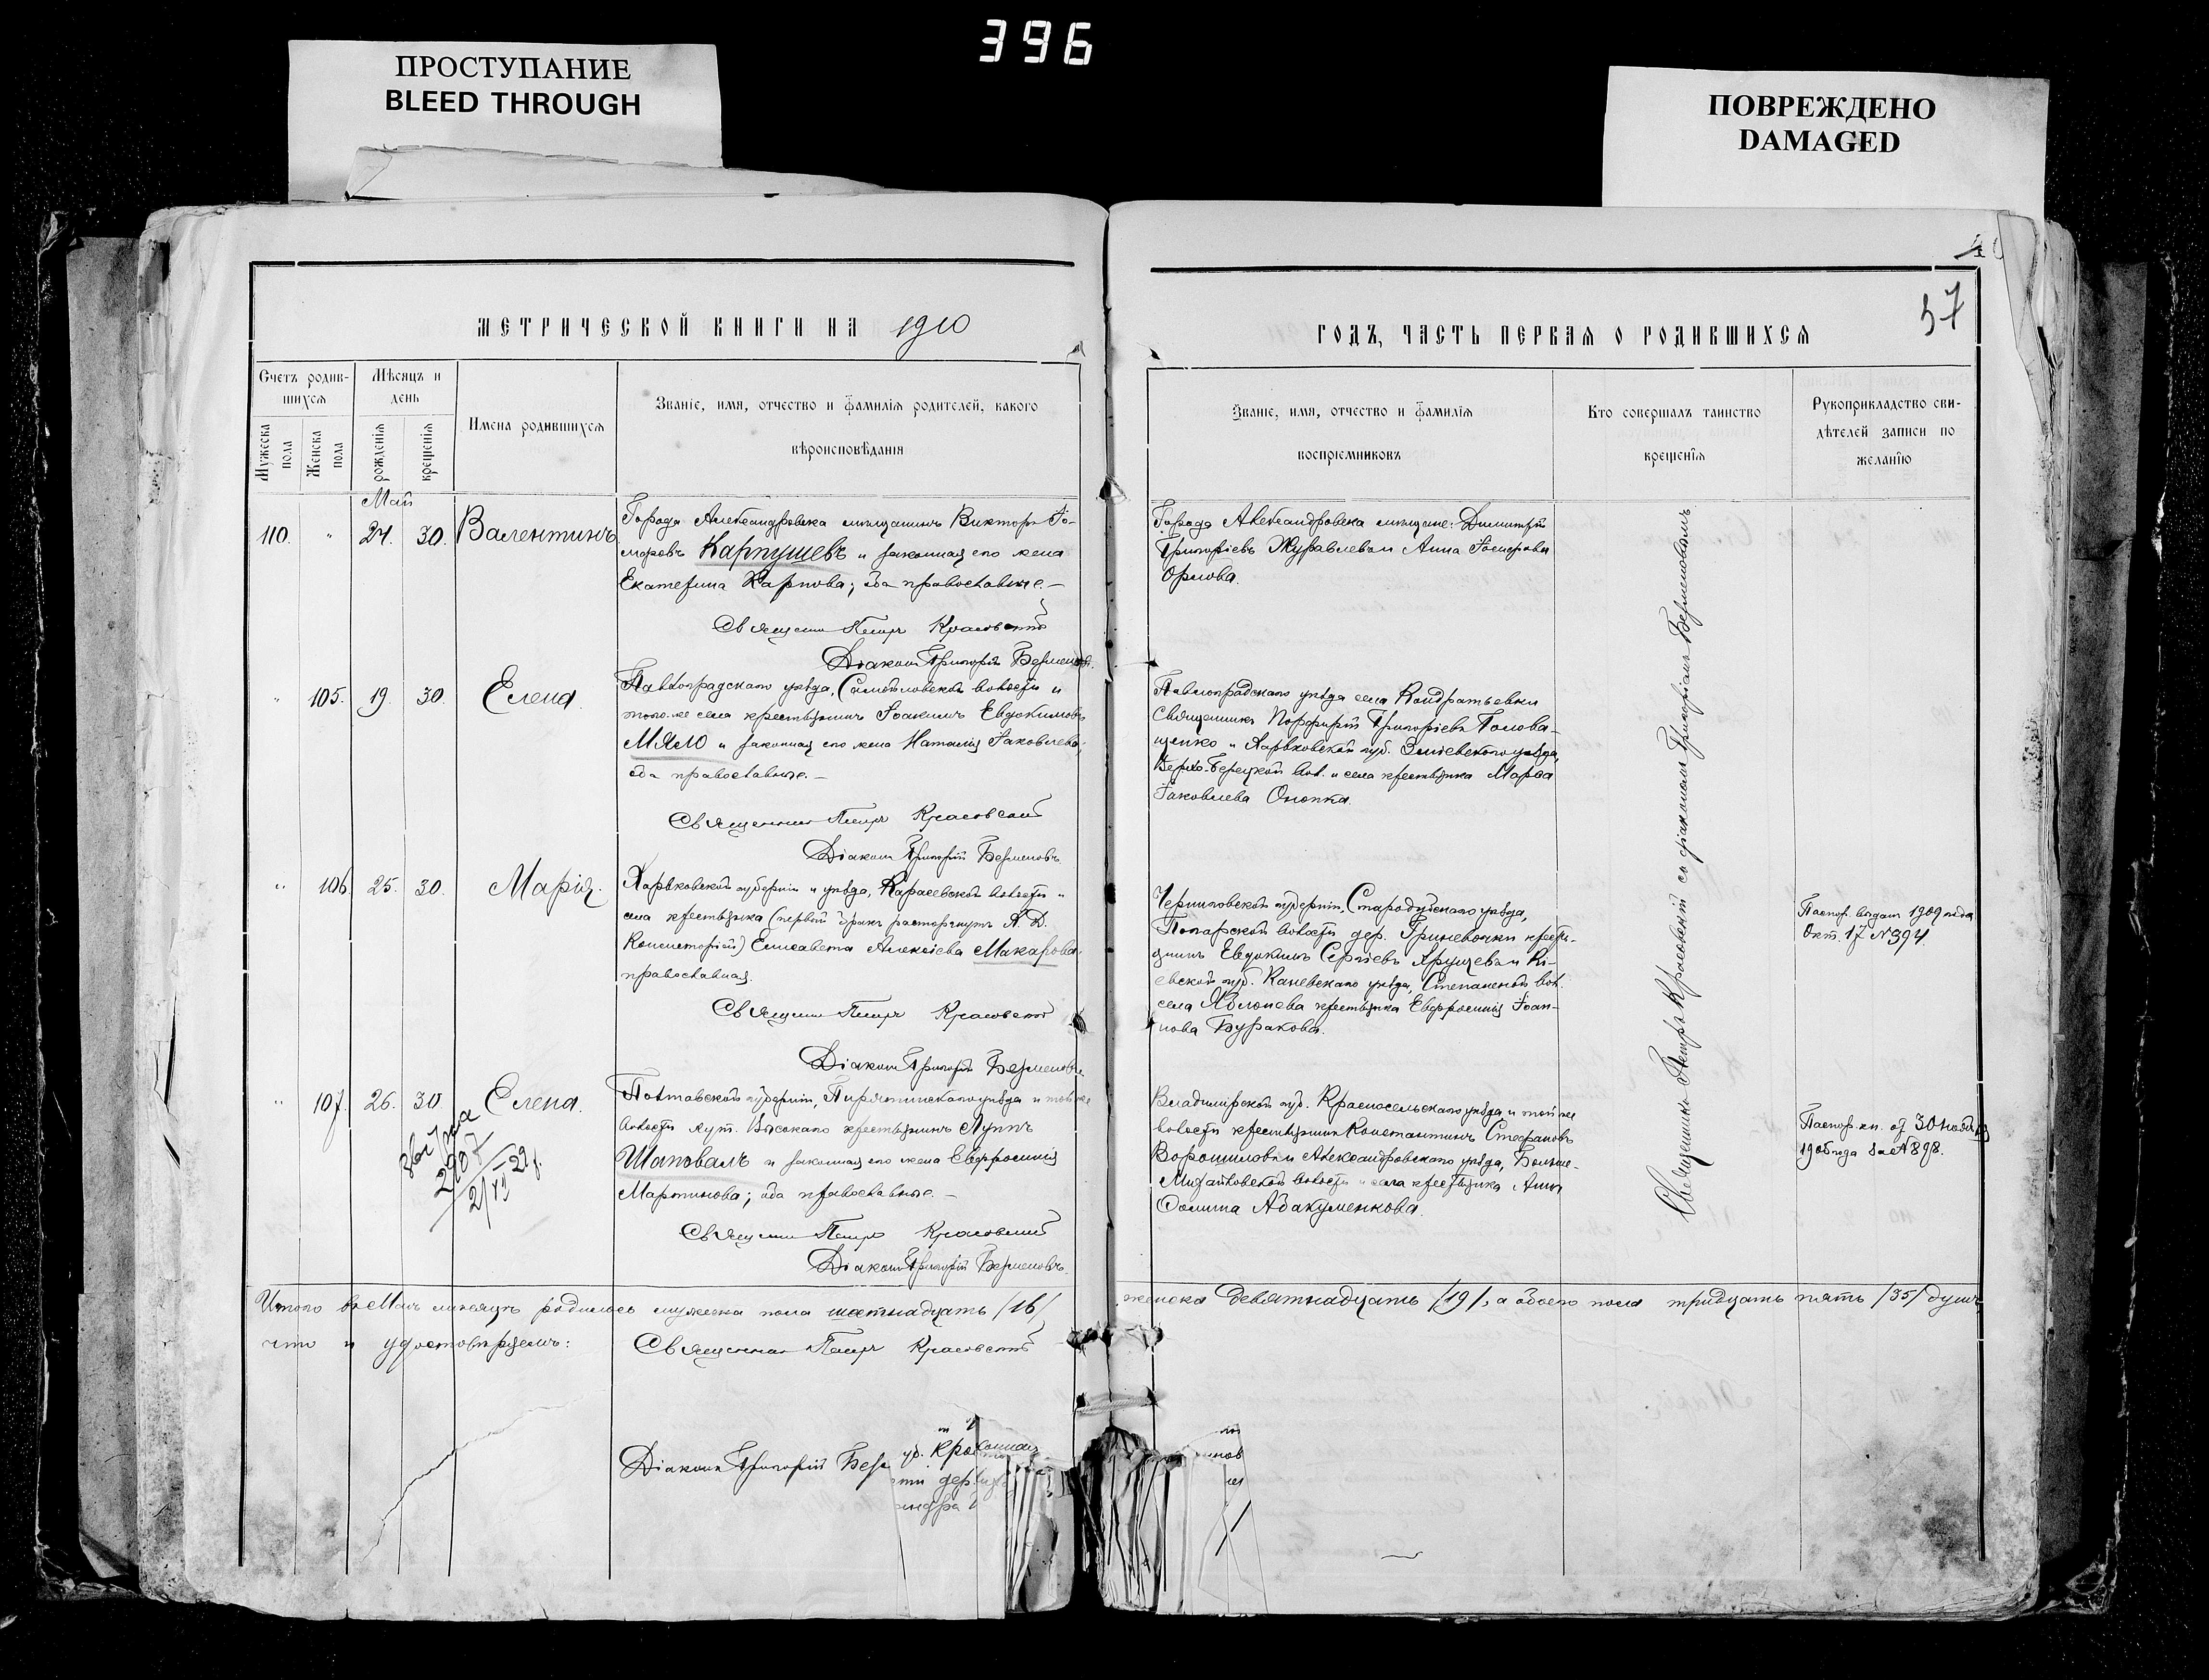 396
ПРОСТУПАНИЕ
BLEED THROUGH
ПОВРЕЖДЕНО
DAMAGED
37
МЕТРИЧЕСКОЙ КНИГИ НА 1910
ГОДЪ, ЧАСТЬ ПЕРВАЯ О РОДИВШИХСЯ
Счетъ родив-
шихся
Мужеска пола
Женска пола
Мѣсяцъ и
день
рожденія
крещенія
Имена родившихся
Званіе, имя, отчество и фамилія родителей, какого
вѣроисповѣданія
Званіе, имя, отчество и фамилія
воспріемниковъ
Кто совершалъ таинство
крещенія
Рукоприкладство сви-
дѣтелей записи по
желанію
Май
110. " 24. 30. Валентинъ
Города Александровска мѣщанинъ Викторъ
Карпушевъ и законная его жена
Екатерина Карпова; оба православные.—
Священникъ Петръ Красовскій
Діаконъ Григорій Берменовъ.
Города Александровска мѣщане: Димитрій
Григоріевъ Журавлевъ и Анна
Орлова.
" 105. 19. 30. Елена.
Павлоградскаго уѣзда, волости и
того-же села крестьянинъ Іоакимъ Евдокимовъ
Мяло и законная его жена Наталія Іаковлева;
оба православные.—
Священникъ Петръ Красовскій
Діаконъ Григорій Берменовъ.
Павлоградскаго уѣзда села Кондратьевки
Священникъ Порфирій Григоріевъ Голова-
щенко и Харьковской губ. Зміевскаго уѣзда,
Верхо-Берецкой вол. и села крестьянка Марѳа
Іаковлева Онопка.
" 106. 25. 30. Марія.
Харьковской губерніи и уѣзда, Карасевской волости и
села крестьянка (первый бракъ расторгнутъ Х. Д.
Консисторіей) Елисавета Алексіева Макарова,
православная.
Священникъ Петръ Красовскій
Діаконъ Григорій Берменовъ.
Черниговской губерніи, Стародубскаго уѣзда,
Понарской волости дер. Гриневочки кресть-
янинъ Евдокимъ Сергіевъ Хрущевъ и Кі-
евской губ. Каневскаго уѣзда, Степанской вол.
села Яблонева крестьянка Евфросинія Іоан-
нова Буракова.
Паспор. выданъ 1909 года
Окт. 17 № 394.
" 107. 26. 30. Елена.
2907
Полтавской губерніи, Пирятинскаго уѣзда и той же
волости хут. Высокаго крестьянинъ Луппъ
Шаповалъ и законная его жена Евфросинія
Мартинова; оба православные.—
Священникъ Петръ Красовскій
Діаконъ Григорій Берменовъ.
Владимірской губ. Красносельскаго уѣзда и той же
волости крестьянинъ Константинъ Стефановъ
Ворошиловъ и Александровскаго уѣзда, Больше-
Михайловской волости и села крестьянка Анна
Ѳомина Абакуменкова.
Паспор. кн. от 30 ноября
1906 года за № 898.
Священникъ Петръ Красовскій со діакономъ Григоріемъ Берменовымъ
Итого въ Маѣ мѣсяцѣ родилось мужеска пола шестнадцать /16/,
женска девятнадцать /19/, а обоего пола тридцать пять /35/ душъ,
что и удостовѣряемъ: Священникъ Петръ Красовскій
Діаконъ Григорій